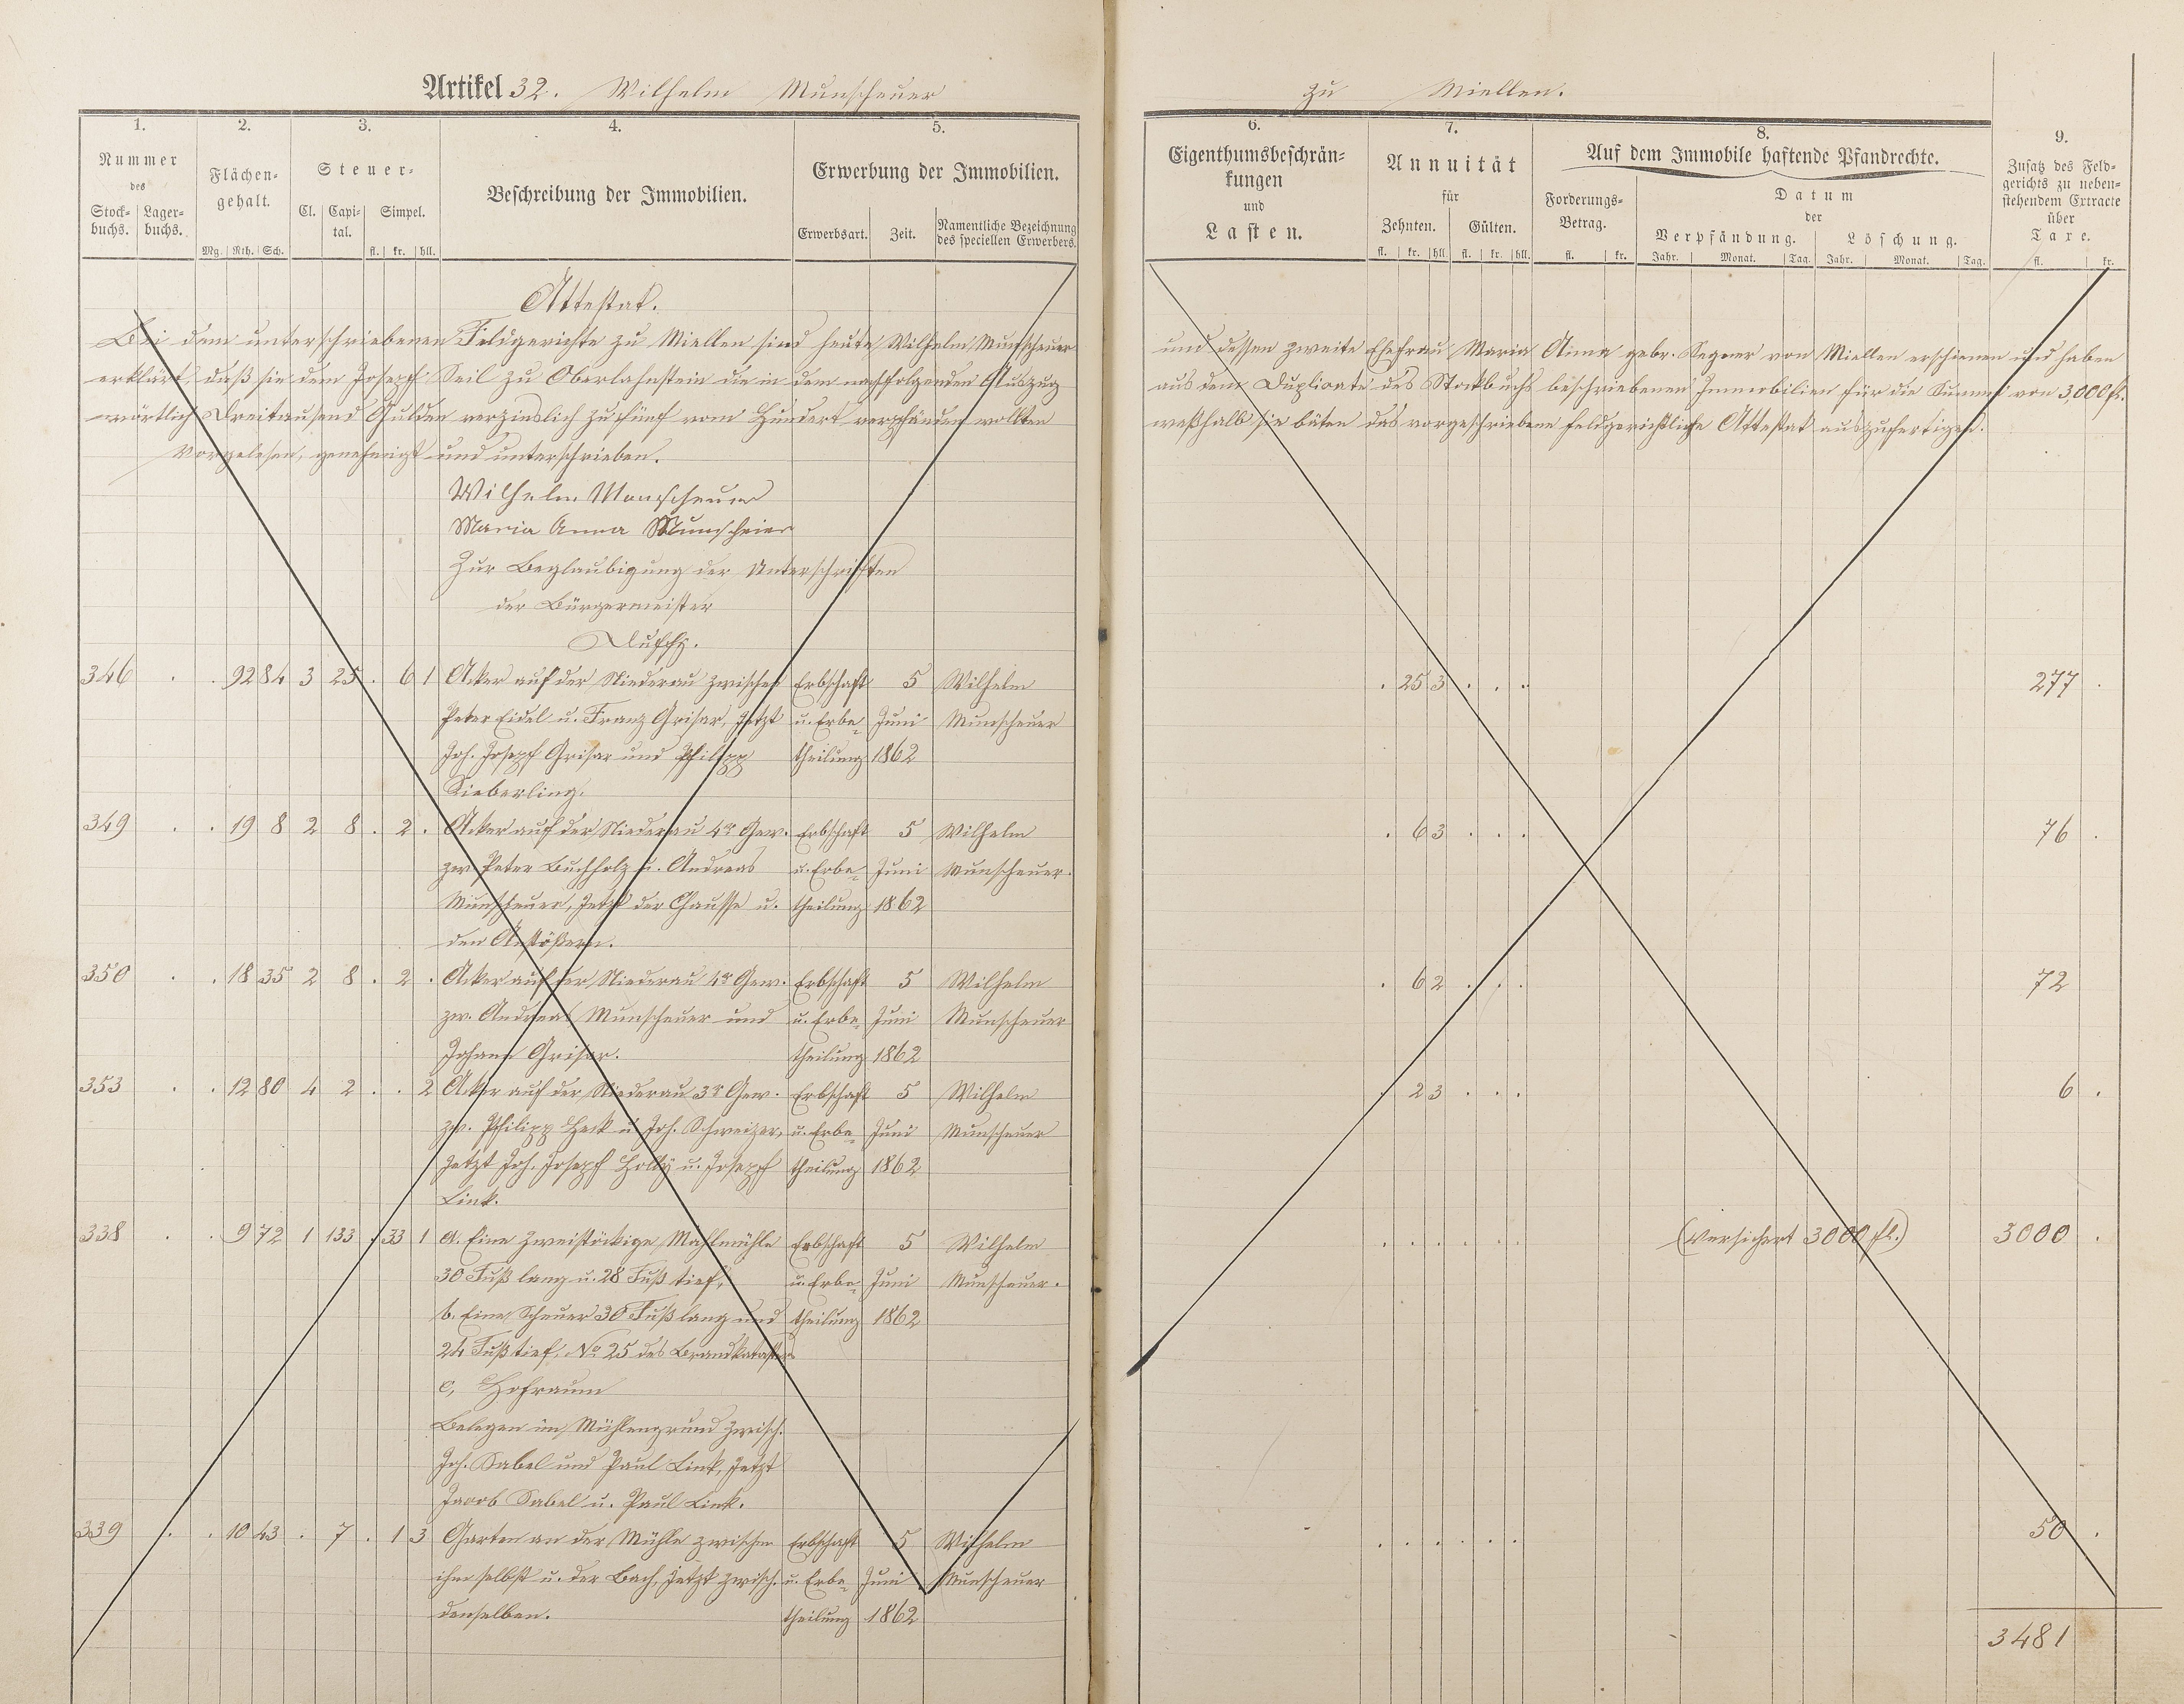 Artikel 32. Wilhelm Munscheuer zu Miellen.
1. 2. 3. 4. 5. 6. 7. 8. 9.
Nummer des
Stock- buchs. Lager- buchs.
Flächen- gehalt.
Mg. Rth. Sch.
Steuer-
Cl. Capi- tal. Simpel.
fl. kr. hll.
Beschreibung der Immobilien.
Erwerbung der Immobilien.
Erwerbsart. Zeit. Namentliche Bezeichnung des speciellen Erwerbers.
Eigenthumsbeschrän- kungen und Lasten.
Annuität für
Zehnten. Gülten.
fl. kr. hll. fl. kr. hll.
Auf dem Immobile haftende Pfandrechte.
Forderungs- Betrag.
fl. kr.
Datum der
Verpfändung. Löschung.
Jahr. Monat. Tag. Jahr. Monat. Tag.
Zusatz des Feld- gerichts zu neben- stehendem Extracte über Taxe.
fl. kr.
Attestat.
Bei dem unterschriebenen Feldgerichte zu Miellen sind heute Wilhelm Munscheuer und dessen zweite Ehefrau Maria Anna gebr. von Miellen erschienen und haben
erklärt, daß sie dem Joseph Seil zu Oberlahnstein die in dem nachfolgenden Auszug aus dem Duplicate des Stockbuchs beschriebenen Immobilien für die Summe von 3,000 fl.
wörtlich Dreitausend Gulden verzinslich zu fünf vom Hundert verpfänden wollten weßhalb sie bäten das vorgeschriebene feldgerichtliche Attestat auszufertigen.
Vorgelesen, genehmigt und unterschrieben.
Wilhelm Munscheuer
Maria Anna Munscheier
Zur Beglaubigung der Unterschriften
der Bürgermeister
346 . . 92 84 3 25 . 6 1 Acker auf der Niederau zwischen Erbschaft 5 Wilhelm . 25 3 . . . 277 .
Peter Eidel u. Franz Grisar, Jetzt u. Erbe- Juni Munscheuer
Joh. Joseph Grisar und Philipp theilung 1862
Kieberling.
349 . . 19 8 2 8 . 2 . Acker auf der Niederau 4r Gew. Erbschaft 5 Wilhelm . 6 3 . . . 76 .
zw. Peter Buchholz u. Andreas u. Erbe- Juni Munscheuer.
Munscheuer, Jetzt der Chausse u. theilung 1862
den Anstößern.
350 . . 18 35 2 8 . 2 . Acker auf der Niederau 4r Gew. Erbschaft 5 Wilhelm . 6 2 . . . 72
zw. Andreas Munscheuer und u. Erbe- Juni Munscheuer
Johann Grisar. theilung 1862
353 . . 12 80 4 2 . . 2 Acker auf der Niederau 3r Gew. Erbschaft 5 Wilhelm . 2 3 . . . 6 .
zw. Philipp Heck u. Joh. Schweizer, u. Erbe- Juni Munscheuer
Jetzt Joh. Joseph Holly u. Joseph theilung 1862
Link.
338 . . 9 72 1 133 . 33 1 a. Eine zweistöckige Mahlmühle Erbschaft 5 Wilhelm . . . . . . (versichert 3000 fl.) 3000 .
30 Fuß lang u. 28 Fuß tief, u. Erbe- Juni Munscheuer.
b. Eine Scheuer 30 Fuß lang und theilung 1862
24 Fuß tief, No 25 des Brandkataster
c, Hofraum
Belegen im Mühlengrund zwisch.
Joh. Sabel und Paul Link, Jetzt
Jacob Sabel u. Paul Link.
339 . . 10 43 . 7 . 1 3 Garten an der Mühle zwischen Erbschaft 5 Wilhelm . . . . . . 50 .
ihm selbst u. der Bach, Jetzt zwisch. u. Erbe- Juni Munscheuer
denselben. theilung 1862
3481